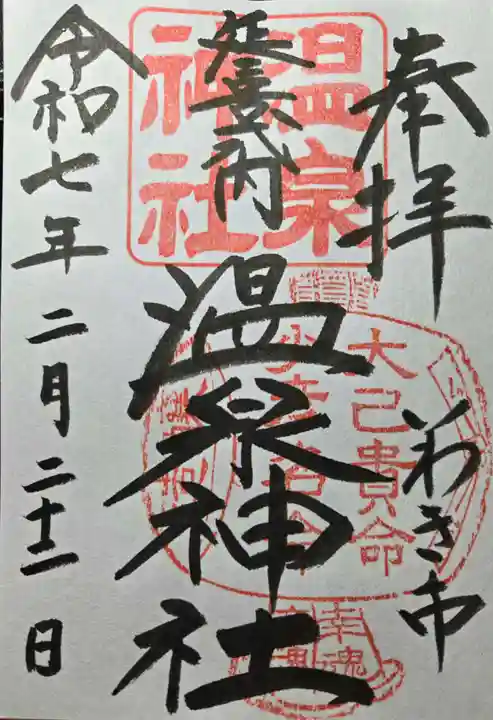 奉拝
いわき市
延喜式内
温泉神社
令和七年二月二十二日
温泉
神社
大己貴命
少彦名命
幸魂